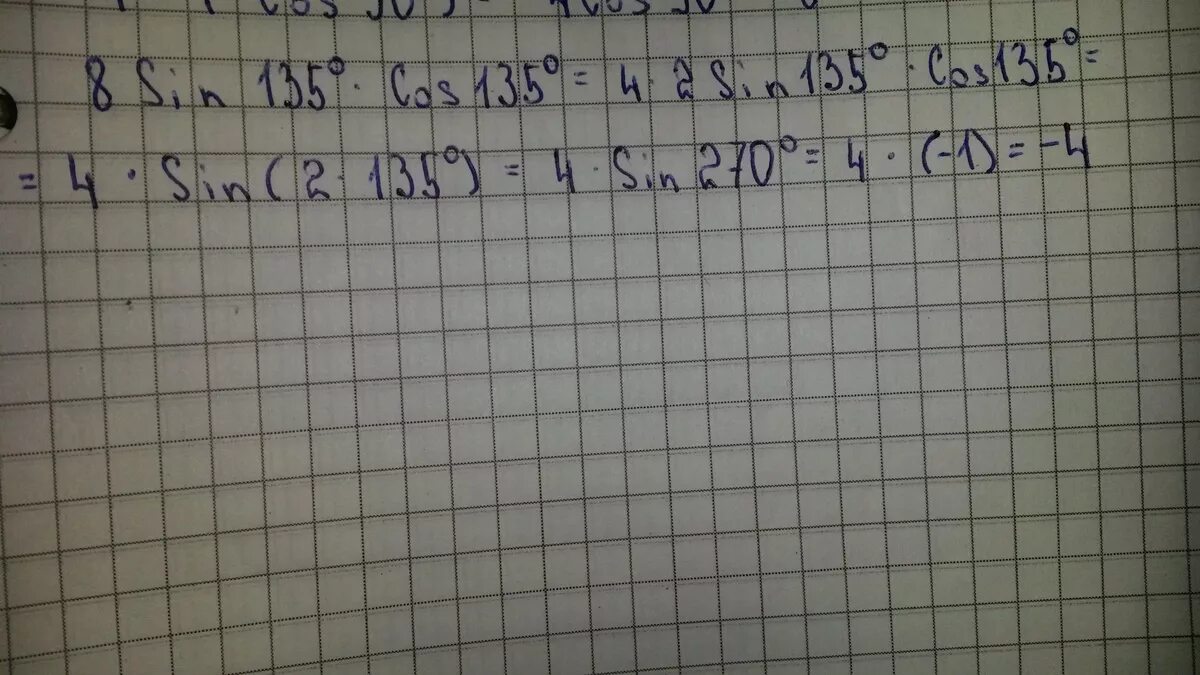 8 Sin 135° · Cos 135° = 4 · 2 Sin 135° · Cos 135° =
= 4 · Sin (2 · 135°) = 4 · Sin 270° = 4 · (-1) = -4